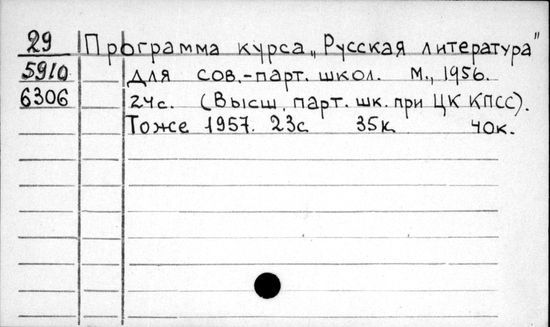 29 Программа курса „Русская литература"
5910 для сов.-парт. школ. М., 1956.
6306 24с. (Высш. парт. шк. при ЦК КПСС).
Тоже 1957. 23с 35к 40к.